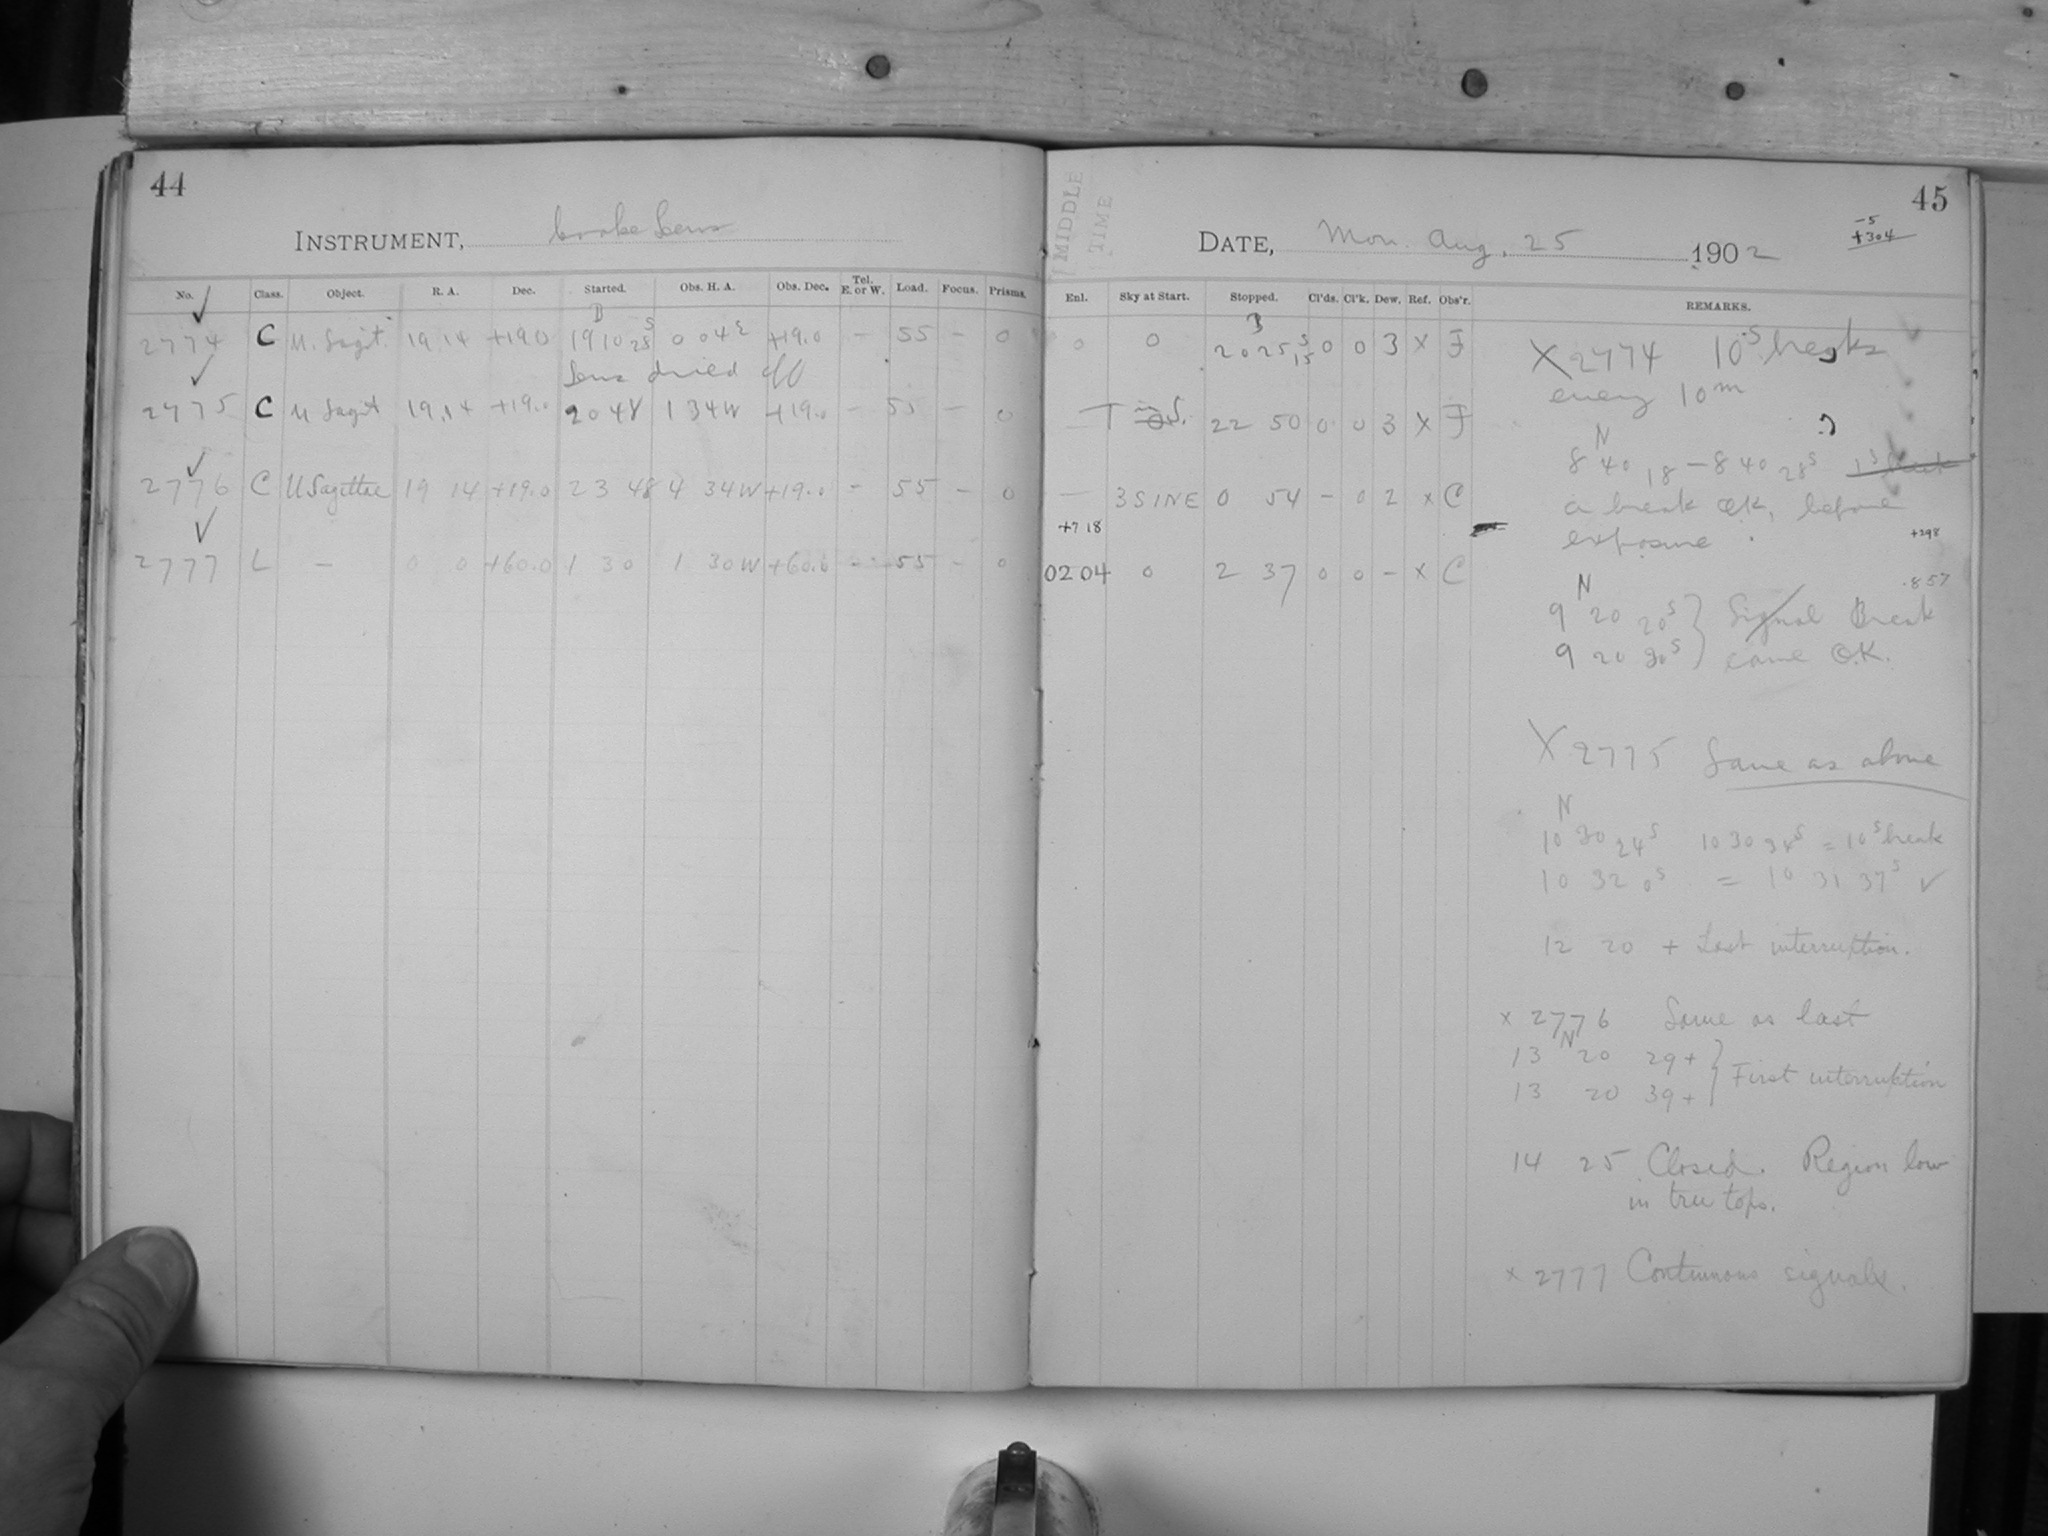 44
INSTRUMENT, Cooke Lens
No. Class. Object. R. A. Dec. Started. Obs. H. A. Obs. Dec. Tel. E. or W. Load. Focus. Prisms.
2774 C U. Sagit. 19 14 +19.0 19 10 25s 0 04 E +19.0 - 55 - 0
Lens dried off
2775 C U Sagit 19 14 +19.0 20 48 1 34W +19.0 - 55 - 0
2776 C U Sagittae 19 14 +19.0 23 48 4 34W +19.0 - 55 - 0
2777 L - 0 0 +60.0 1 30 1 30W +60.0 - 55 - 0
45
MIDDLE
TIME
DATE, Mon. Aug. 25 1902
-5
+304
Enl. Sky at Start. Stopped. Cl'ds. Cl'k. Dew. Ref. Obs'r. REMARKS.
0 0 20 25 15s 0 0 3 X F
22 50 0 0 3 X F
- 3SINE 0 54 - 0 2 x C
+718
0204 0 2 37 0 0 - x C
X 2774 10s breaks
every 10m
N
8 40 18 - 8 40 28s
a break OK, before
exposure
+298
.857
N
9 20 20s } Signal Break
9 20 30s } came O.K.
X 2775 Same as above
N
10 30 24s 10 30 34s = 10s break
10 32 0s = 10 31 37s ✓
12 20 + Last interruption.
x 2776 Same as last
N
13 20 29+ } First interruption
13 20 39+
14 25 Closed. Region low
in tree tops.
x 2777 Continuous signals.